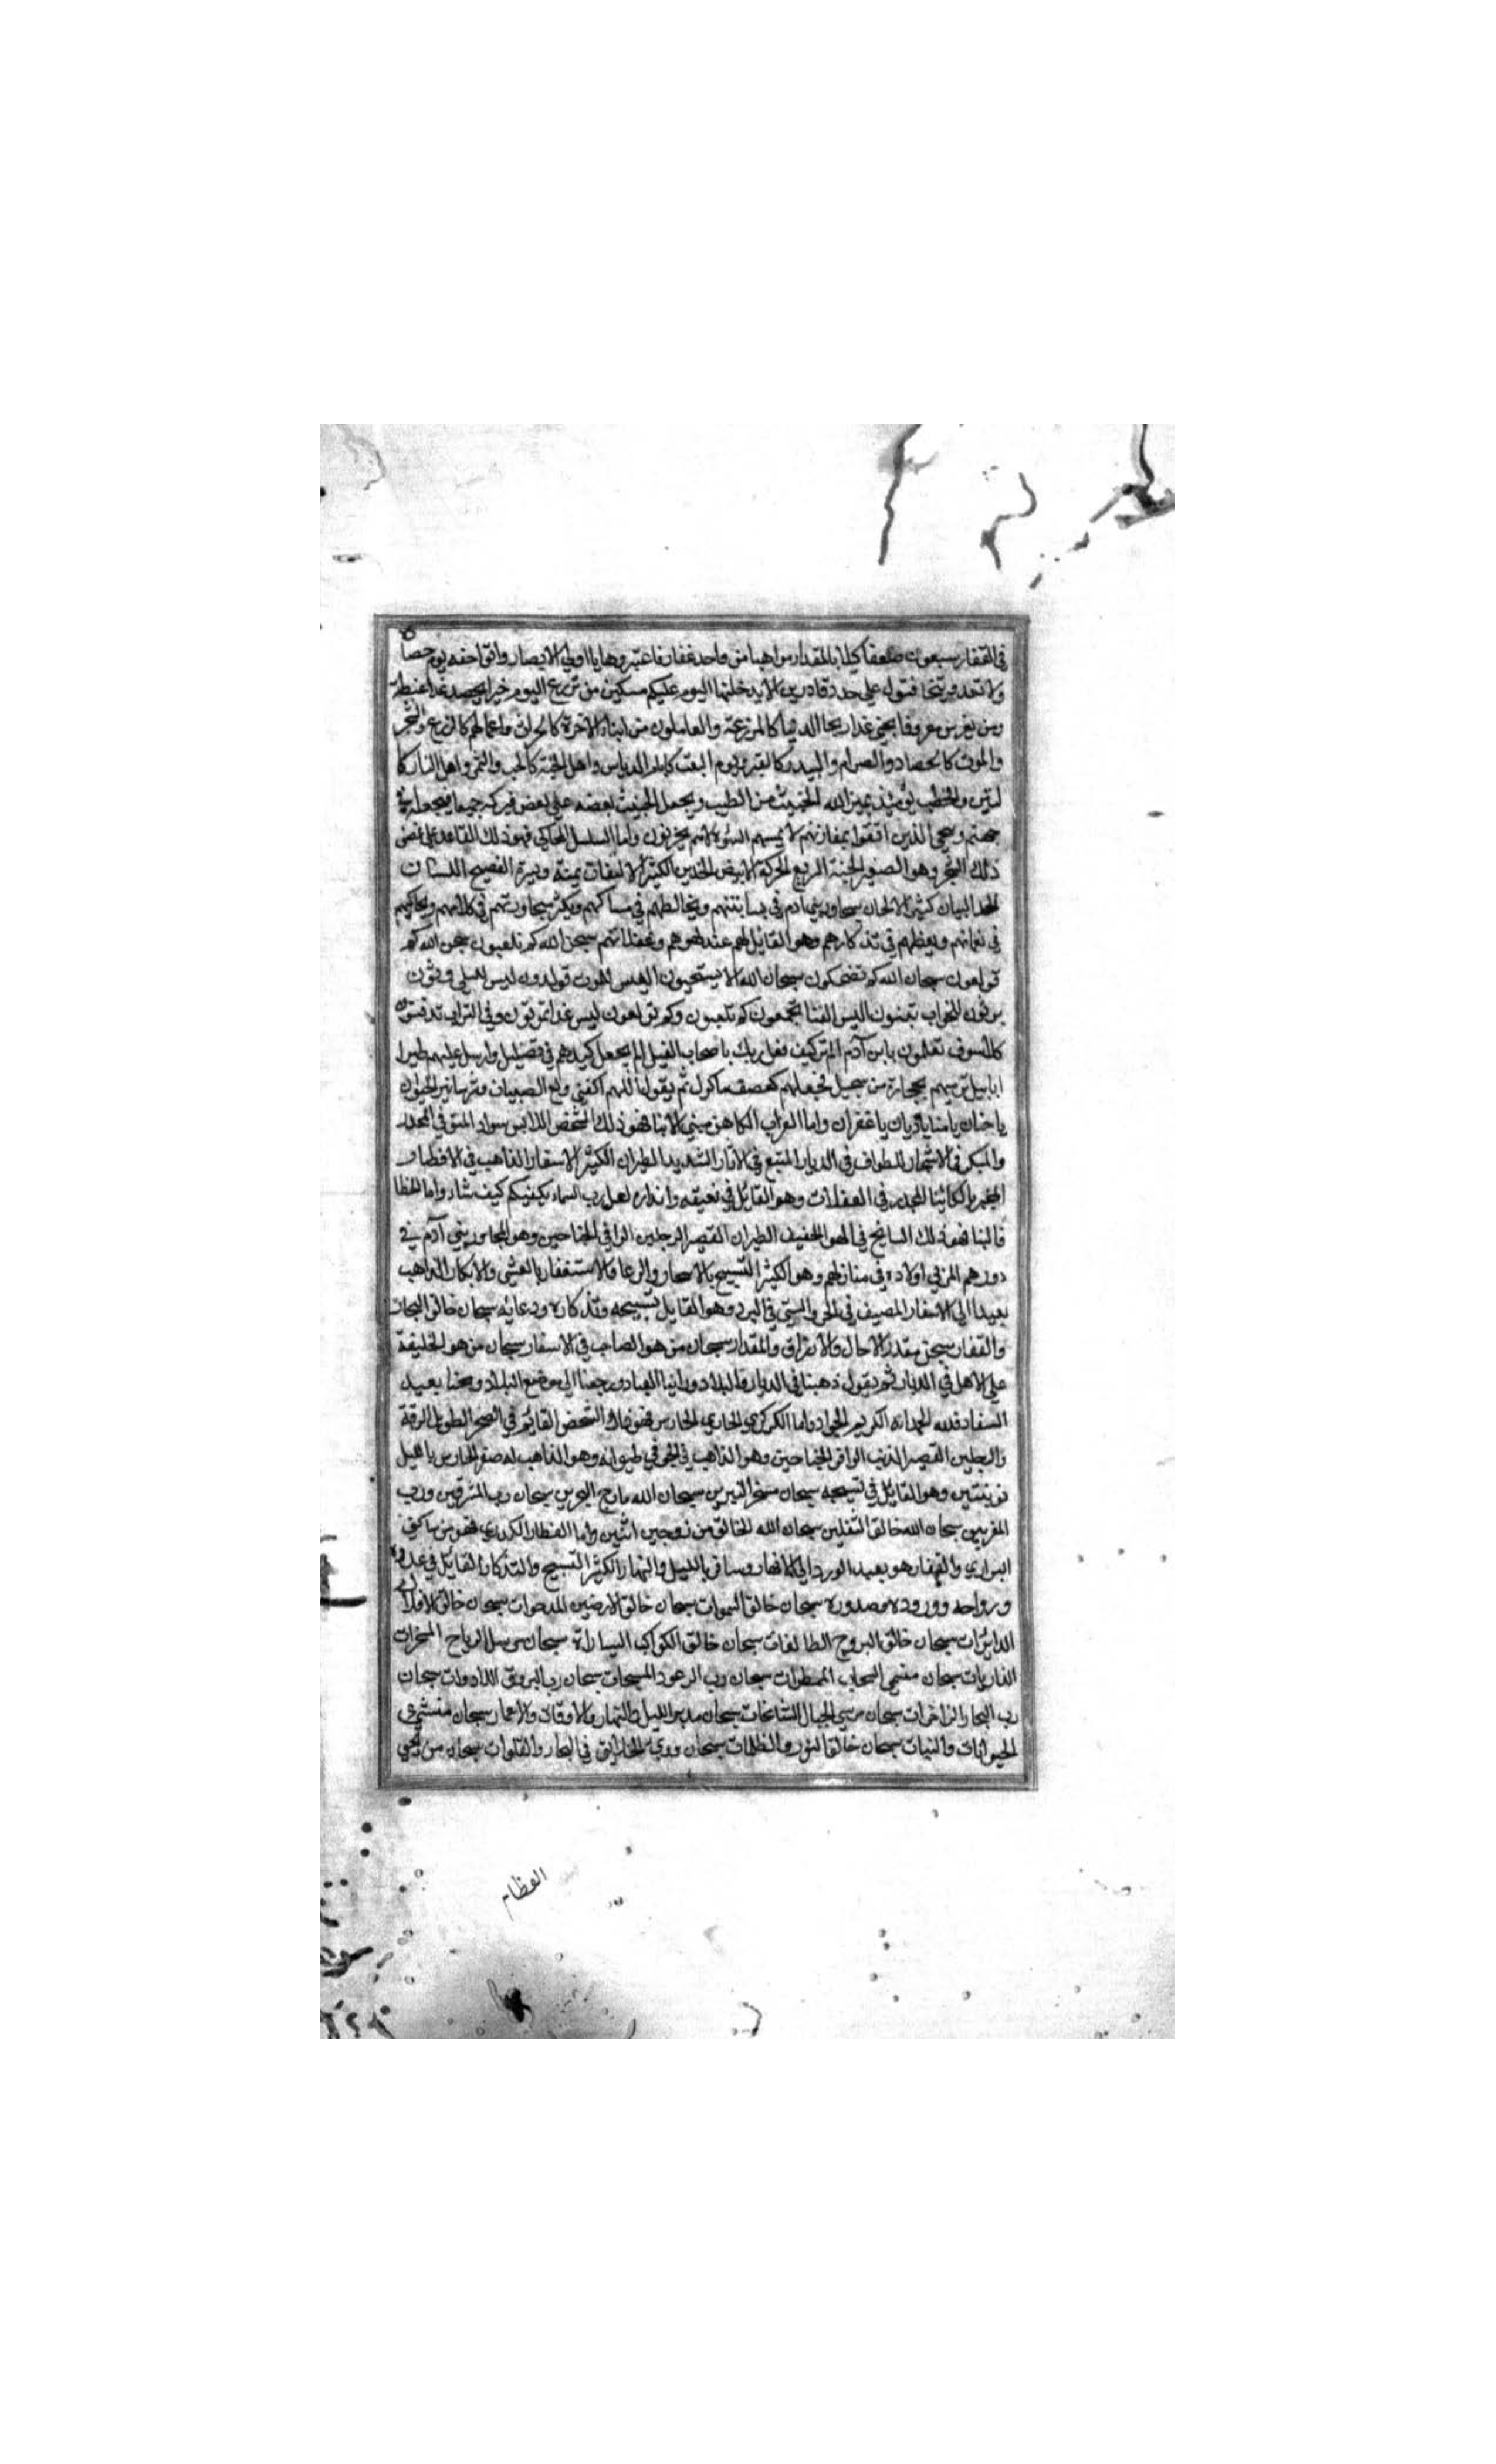 في القفار سبعون ضعفا كيلا بالمقدار من راهبا من واحد غفار فاعتبروها يا اولي الابصار واتوا حقه يوم حصا
ده
ولا تغدو يتخافتون على حرد قادرين الا يدخلنها اليوم عليكم مسكين من يزرع اليوم خيرا يحصد غدا غبطة
ومن يغرس معروفا يجني غدا ربحا الدنيا كالمزرعة والعاملون من ابناء الاخرة كالحراث واعمالهم كالزرع والشجر
والموت كالحصاد والصرام والبيدر كالقبر ويوم البعث كايام الدياس واهل الجنة كالحب والثمر واهل النار كا
لتبن والحطب يومئذ يميز الله الخبيث من الطيب ويجعل الخبيث بعضه على بعض فيركمه جميعا فيجعله في
جهنم وينجي الذين اتقوا بمفازتهم لا يمسهم السوء ولاهم يحزنون واما السلسل المحاكي فهو ذلك القاعد على غصن
ذلك الشجر وهو الصغير الجثة السريع الحركة الابيض الخدين الكثير الالتفات يمنة ويسرة الفصيح اللسان
الجيد البيان كثير الالحان يجاور بني ادم في بساتينهم ويخالطهم في مساكنهم ويكثر مجاوبتهم في كلامهم ويحاكيهم
في نغماتهم ويعظهم في تذكارهم وهو القائل لهم عند لهوهم وغفلاتهم سبحن الله كم تلعبون سبحن الله كم
تولعون سبحان الله كم تضحكون سبحان الله الا تستحيون اليس للموت تولدون اليس للبلى تربون
اليس للخراب تبنون اليس للفنا تجمعون كم تلعبون وكم تولعون اليس غدا تموتون وفي التراب تدفنون
كلا سوف تعلمون يا بن آدم الم تر كيف فعل ربك باصحاب الفيل الم يجعل كيدهم في تضليل وارسل عليهم طيرا
ابابيل ترميهم بحجارة من سجيل فجعلهم كعصف ماكول ثم يقول اللهم اكفني ولع الصبيان وشر سائر الحيوان
يا حنان يا منان يا ديان يا غفران واما الغراب الكاهن منبي الانبا فهو ذلك الشخص اللابس سواد المتوقي المحذر
والمبكر في الاسحار الطواف في الديار المتبع في الاثار الشديد الطيران الكثير الاسفار الذاهب في الاقطار
المخبر بالكائنات المحذر في الغفلات وهو القائل في نعيقه وانذاره لعل رب السماء يكفيكم كيف شاء واما الخطا
ف البنا فهو ذلك السائح في الهوا الخفيف الطيران القصير الرجلين الوافي الجناحين وهو المجاور بني آدم في
دورهم المربي اولاده في منازلهم وهو الكثير التسبيح بالاسحار والدعا والاستغفار بالعشي والابكار الذاهب
بعيدا الى الاسفار المصيف في الحر والمشتي في البرد وهو القايل تسبيحه وتذكاره ودعائه سبحان خالق البحار
والقفار سبحن مقدر الاجال والارزاق والمقدار سبحان من هو الصاحب في الاسفار سبحان من هو الخليفة
على الاهل في الديار ثم يقول ذهبنا في الديار والبلاد وراينا العباد ورجعنا الى موضع البلاد ونتجنا بعد
السفاد فلله الحمد انه الكريم الجواد واما الكركي الحارس فهو ذلك الشخص القائم في الصحر الطويل الرقبة
والرجلين القصير الذنب الوافر الجناحين وهو الذاهب في الجو في طيرانه وهو الذاهب له صفر الحارس بالليل
نوبتين وهو القائل في تسبيحه سبحان مسخر النيرين سبحان الله مارج البحرين سبحان رب المشرقين ورب
المغربين سبحان الله خالق الثقلين سبحان الله الخالق من زوجين اثنين واما القطا الكدري فهو من ساكني
البراري والقفار هو بعيد الورد الى الانهار ومسافر بالليل والنهار الكثير التسبيح والتذكار القايل في غدوه
ورواحه ووروده وصدوره سبحان خالق السموات سبحان خالق الارضين المدحوات سبحان خالق الافلاك
الدائرات سبحان خالق البروج الطالعات سبحان خالق الكواكب السيارات سبحان مرسل الرياح المسخرات
الذاريات سبحان منشي السحاب الممطرات سبحان رب الرعود المسبحات سبحان رب البروق اللامعات سبحان
رب البحار الزاخرات سبحان مرسي الجبال الشامخات سبحان مدبر الليل والنهار والاوقات والاعمار سبحان منشئ
الحيوانات والنبات سبحان خالق النور والظلمات سبحان الخلائق في البحار والفلوات سبحان من يحيي
العظام